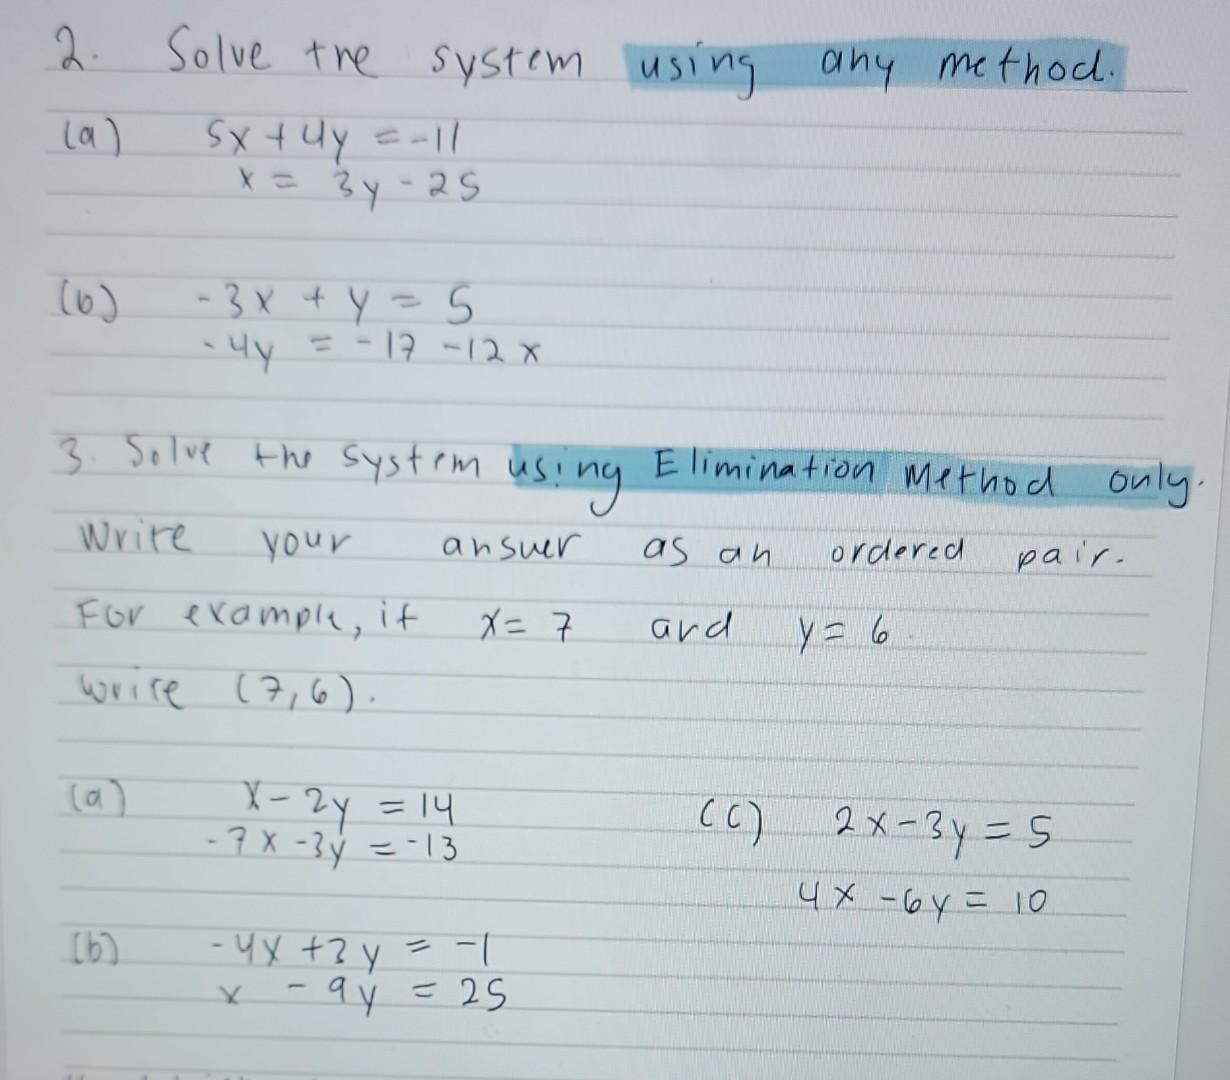 2. Solve the system using any method.
(a) 5x + 4y = -11
x = 3y - 25
(b) -3x + y = 5
-4y = -17 - 12x
3. Solve the system using Elimination Method only.
Write your answer as an ordered pair.
For example, if x = 7 and y = 6
write (7,6).
(a) x - 2y = 14
-7x - 3y = -13
(b) -4x + 3y = -1
x - 9y = 25
(c) 2x - 3y = 5
4x - 6y = 10